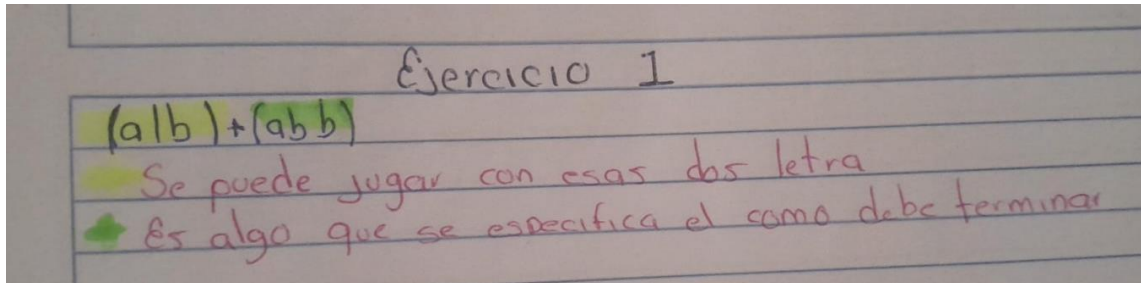 Ejercicio 1
(a|b)+(abb)
Se puede jugar con esas dos letra
Es algo que se especifica el como debe terminar